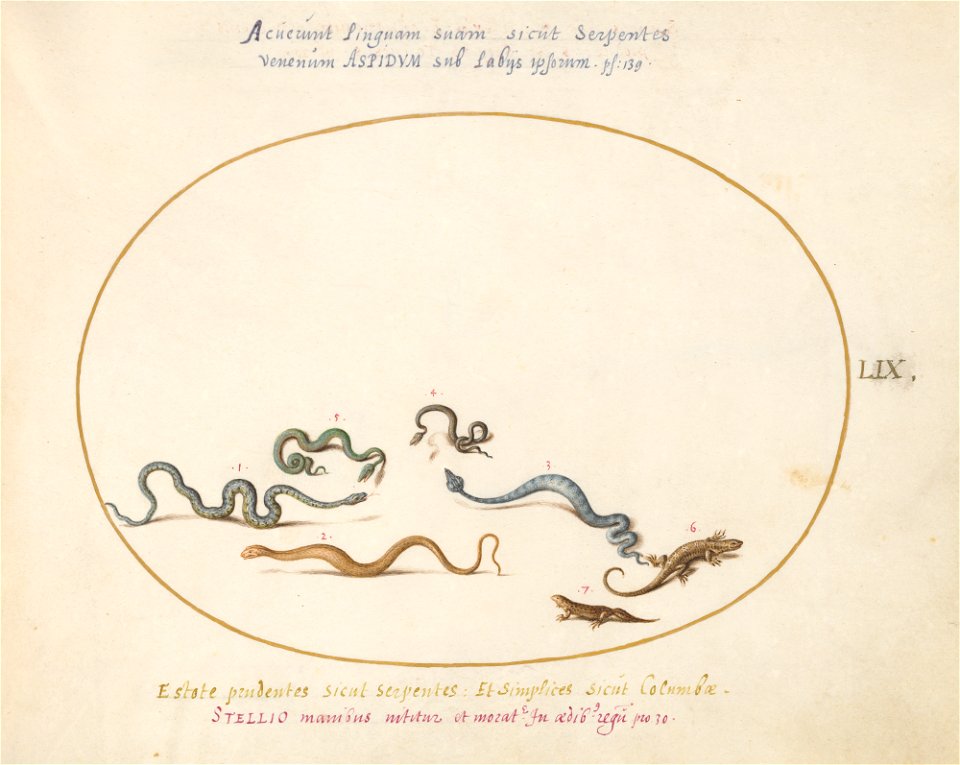 Acuerunt linguam suam sicut Serpentes
venenum ASPIDVM sub labijs ipsorum. ps: 139.
LIX,
4
5
3
1
6
2
7
Estote prudentes sicut serpentes: Et Simplices sicut Columbæ.
STELLIO manibus nititur et morat^r In ædib^9 regũ pro 30.